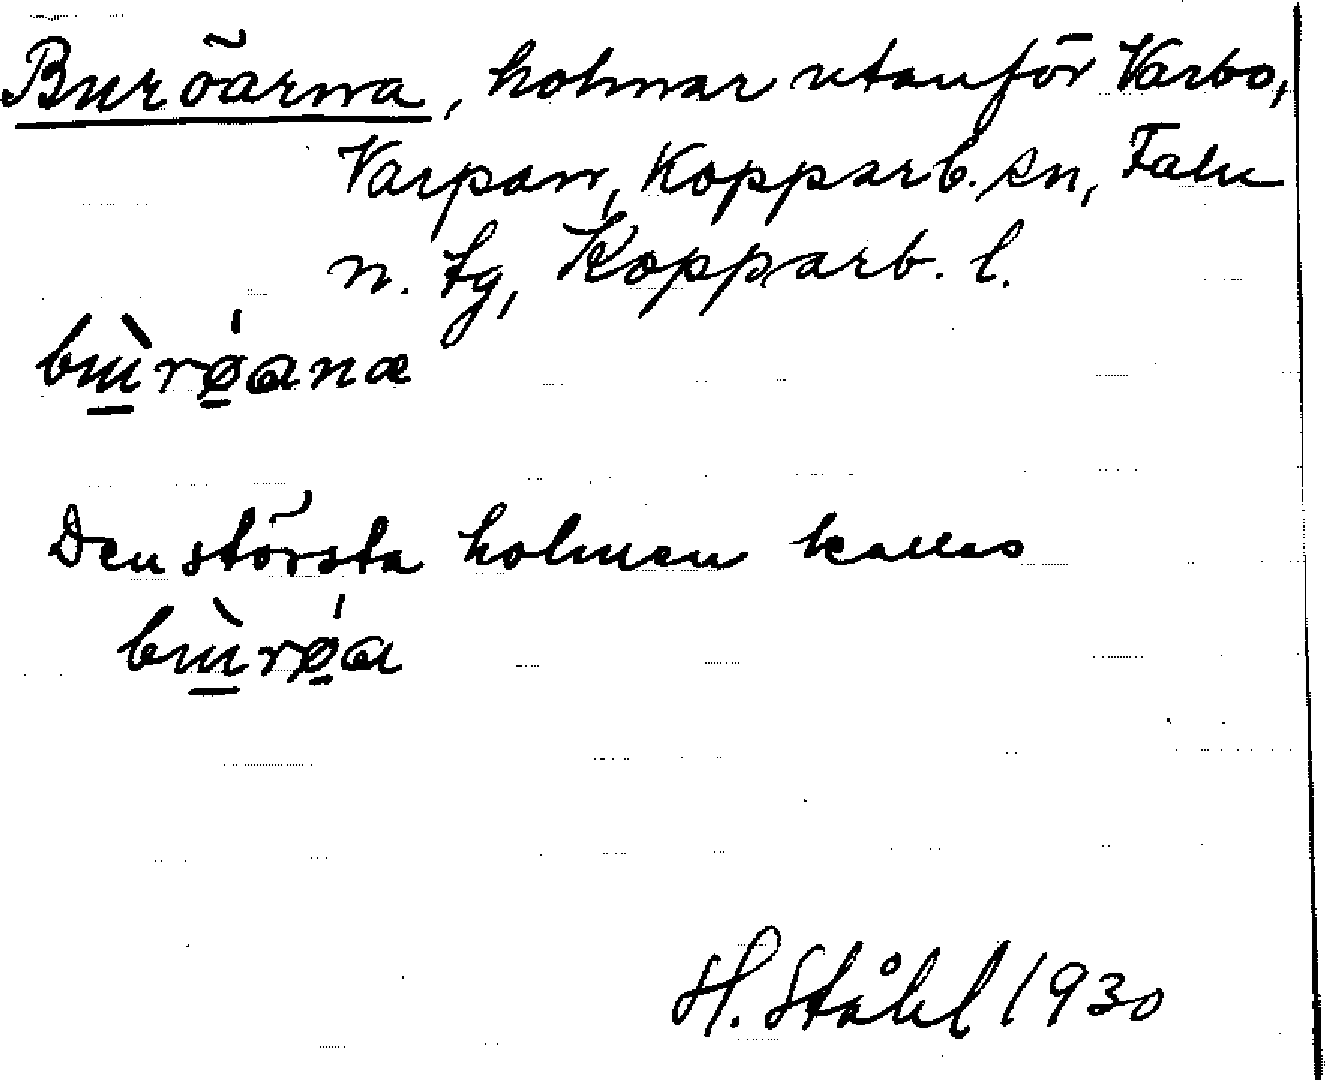 Buröarna, holmar utanför Varbo,
Varpan, Kopparb. sn, Falu
n. tg, Kopparb. l.
bɯ̀rø̀ana
Den största holmen kallas
bɯ̀rø̀a
H. Ståhl 1930